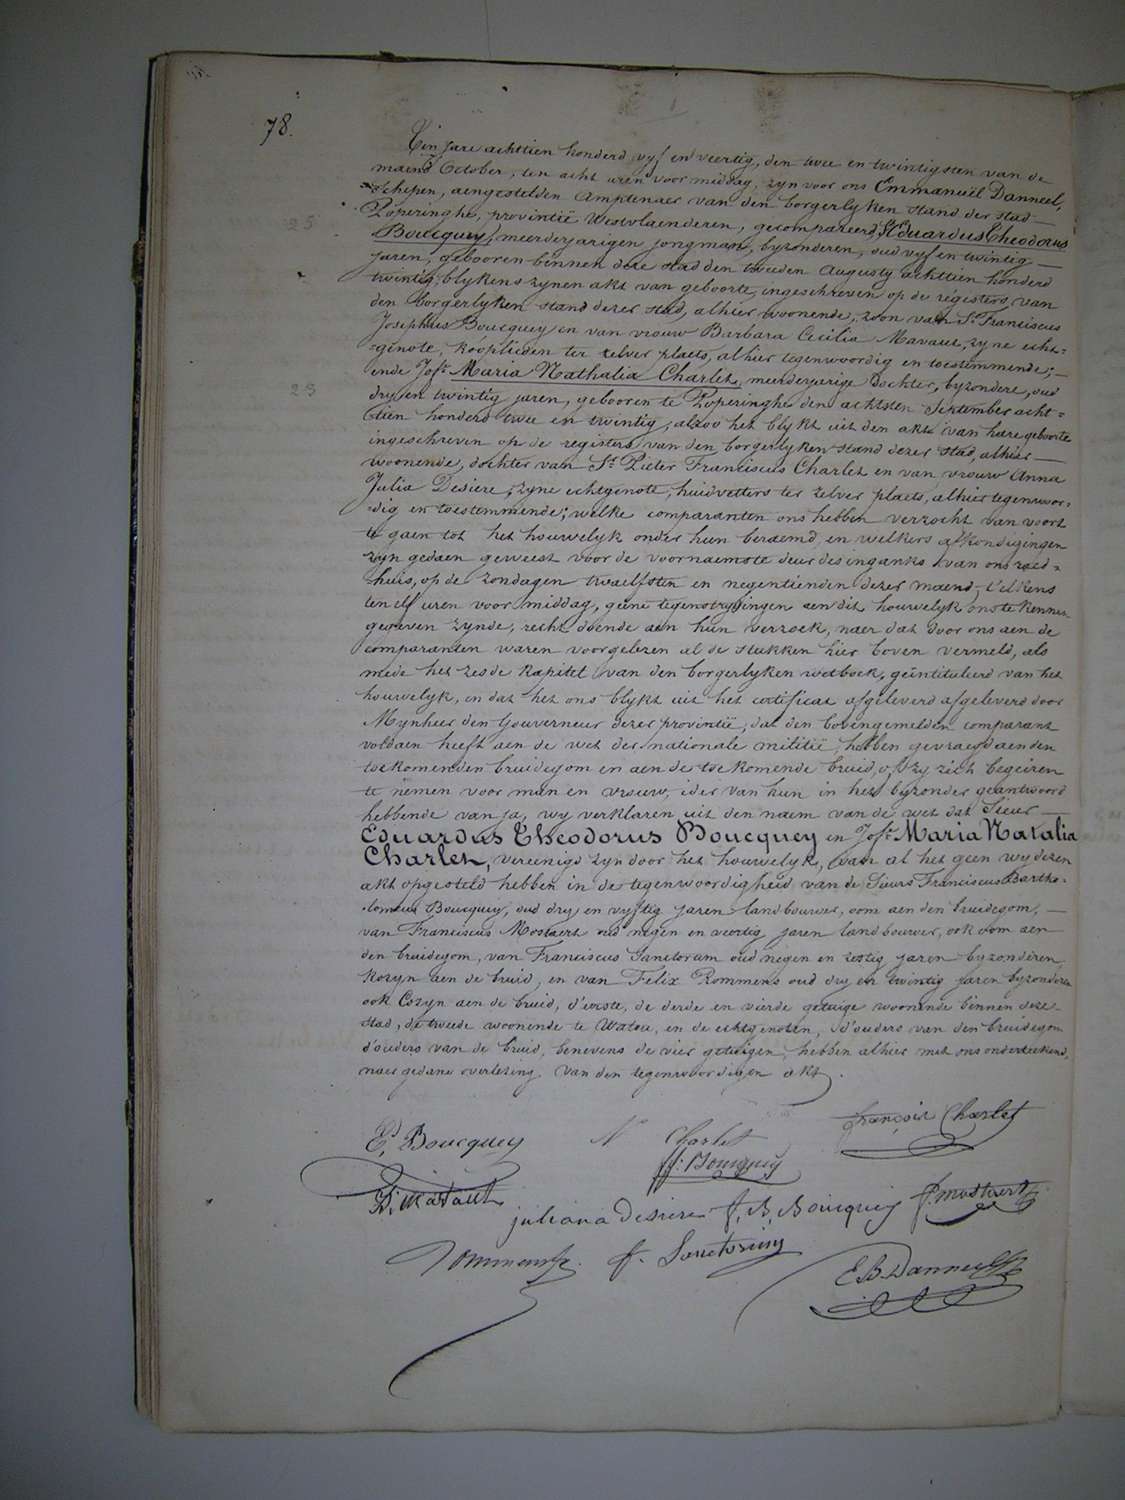 78.
In jare achttien honderd vyf en veertig, den twee en twintigsten van de
maend October, ten acht uren voor middag, zyn voor ons Emmanuël Danneel,
schepen, aengestelden Amptenaer van den borgerlyken stand der stad
Poperinghe, provintië Westvlaenderen, gecompareerd, Sr. Eduardus Theodorus
25
Boucquey, meerderjarigen jongman, byzonderen, oud vyf en twintig
jaren, gebooren binnen deze stad den tweeden Augusty achttien honderd
twintig, blykens zynen akt van geboorte, ingeschreven op de registers van
den borgerlyken stand dezer stad, alhier woonende, zoon van Sr. Franciscus
Josephus Boucquey en van vrouw Barbara Cecilia Mavaut, zyne echt=
=genote, kooplieden ter zelver plaets, alhier tegenwoordig en toestemmende;
ende Jofe. Maria Nathalia Charlet, meerderjarige dochter, byzondere, oud
23
dry en twintig jaren, gebooren te Poperinghe den achtsten September acht=
=tien honderd twee en twintig, alzoo het blykt uit den akt van hare geboorte
ingeschreven op de registers van den borgerlyken stand dezer stad, alhier
woonende, dochter van Sr. Pieter Franciscus Charlet en van vrouw Anna
Julia Desiere, zyne echtegenote, huidvetters ter zelver plaets, alhier tegenwoor=
=dig en toestemmende; welke comparanten ons hebben verzocht van voort
te gaen tot het houwelyk onder hun beraemd, en welkers afkondigingen
zyn gedaen geweest voor de voornaemste deur des inganks van ons raed=
=huis, op de zondagen twaelfsten en negentienden dezer maend, t'elkens
ten elf uren voor middag, geene tegenstrygingen aen dit houwelyk ons te kennen
gegeven zynde, recht doende aen hun verzoek, naer dat door ons aen de
comparanten waren voorgelezen al de stukken hier boven vermeld, als
mede het zesde kapitel van den borgerlyken wetboek, geïntituleerd van het
houwelyk, en dat het ons blykt uit het certificat afgeleverd afgeleverd door
Mynheer den Gouverneur dezer provintië, dat den bovengemelden comparant
voldaen heeft aen de wet der nationale militië, hebben gevraegd aen den
toekomenden bruidegom en aen de toekomende bruid, of zy zich begeiren
te nemen voor man en vrouw, ider van hun in het byzonder geantwoord
hebbende van ja, wy verklaren uit den naem van de wet dat Sieur
Eduardus Theodorus Boucquey en Jofe. Maria Natalia
Charlet, vereenigd zyn door het houwelyk, van al het geen wy dezen
akt opgesteld hebben in de tegenwoordigheid van de Sieurs Franciscus Bartho=
=lomeus Boucquey, oud dry en vyftig jaren landbouwer, oom aen den bruidegom,
van Franciscus Mostaert oud negen en veertig jaren landbouwer, ook oom aen
den bruidegom, van Franciscus Sanctorum oud negen en zestig jaren byzonderen
kozyn aen de bruid, en van Felix Rommens oud dry en twintig jaren byzonderen
ook Cozyn aen de bruid, d'eerste, de derde en vierde getuige woonende binnen deze
stad, de tweede woonende te Watou, en de echtgenoten, d'ouders van den bruidegom
d'ouders van de bruid, benevens de vier getuigen, hebben alhier met ons onderteekend,
naer gedane overlezing van den tegenwoordigen akt.
E. Boucquey N Charlet François Charlet
f. Boucquey
B. Mavaut juliana Desiere f. B. Boucquey f. mostaert
Rommens f. f. Sanctorum
E B Danneel